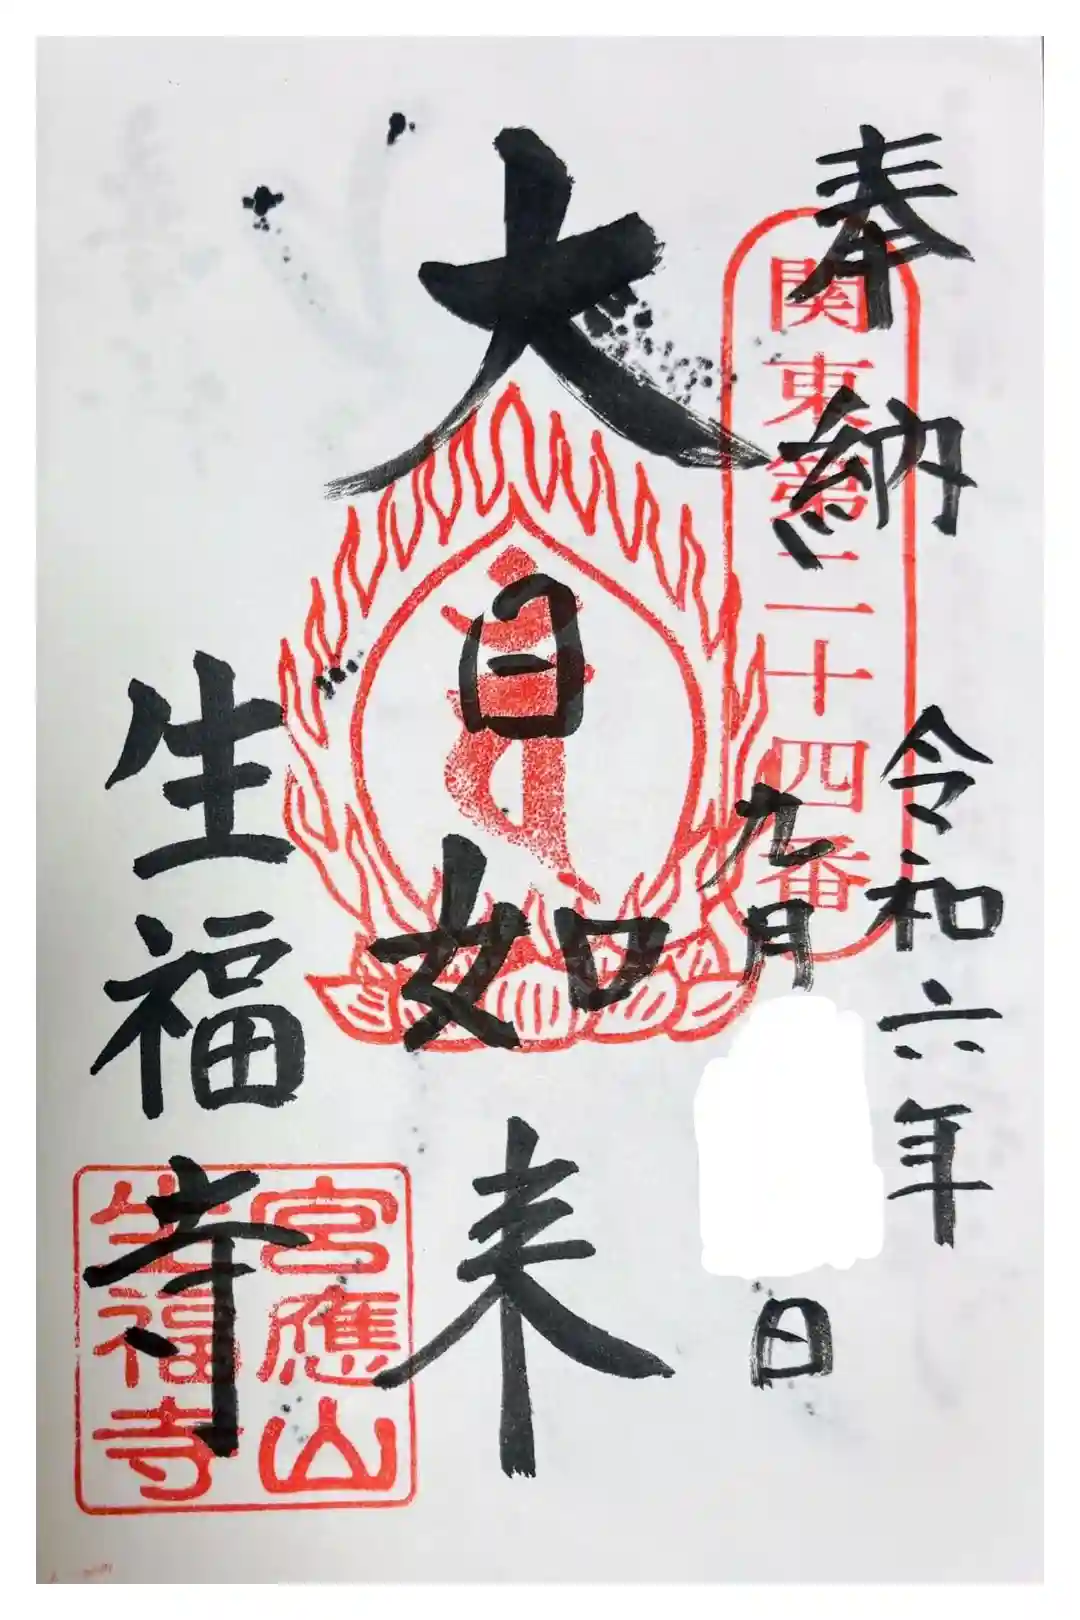 奉納
関東第三十四番
令和六年
九月
日
大日如来
生福寺
宮應山
生福寺